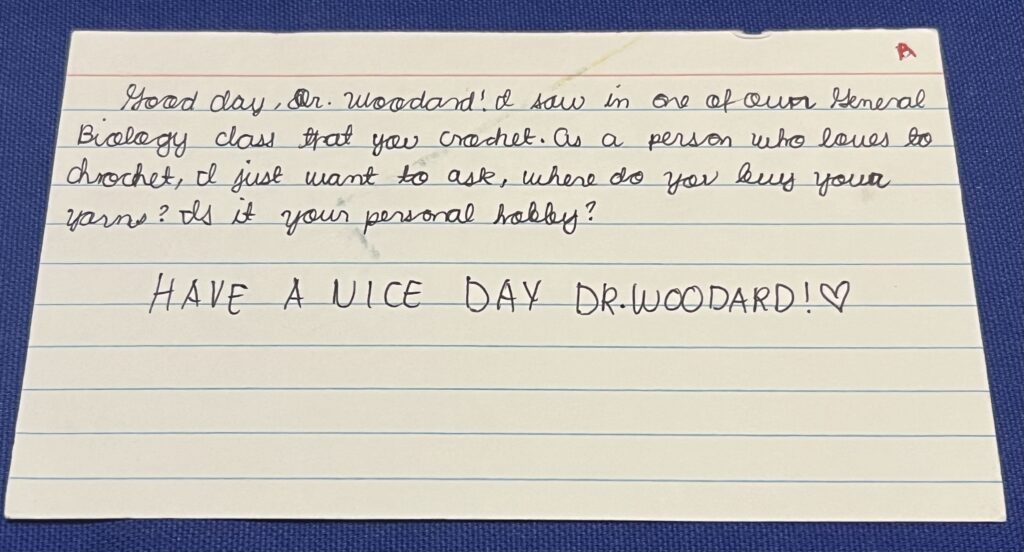 A
Good day, Dr. Woodard! I saw in one of our General
Biology class that you crochet. As a person who loves to
chrochet, I just want to ask, where do you buy your
yarns? Is it your personal hobby?
HAVE A NICE DAY DR.WOODARD!♡